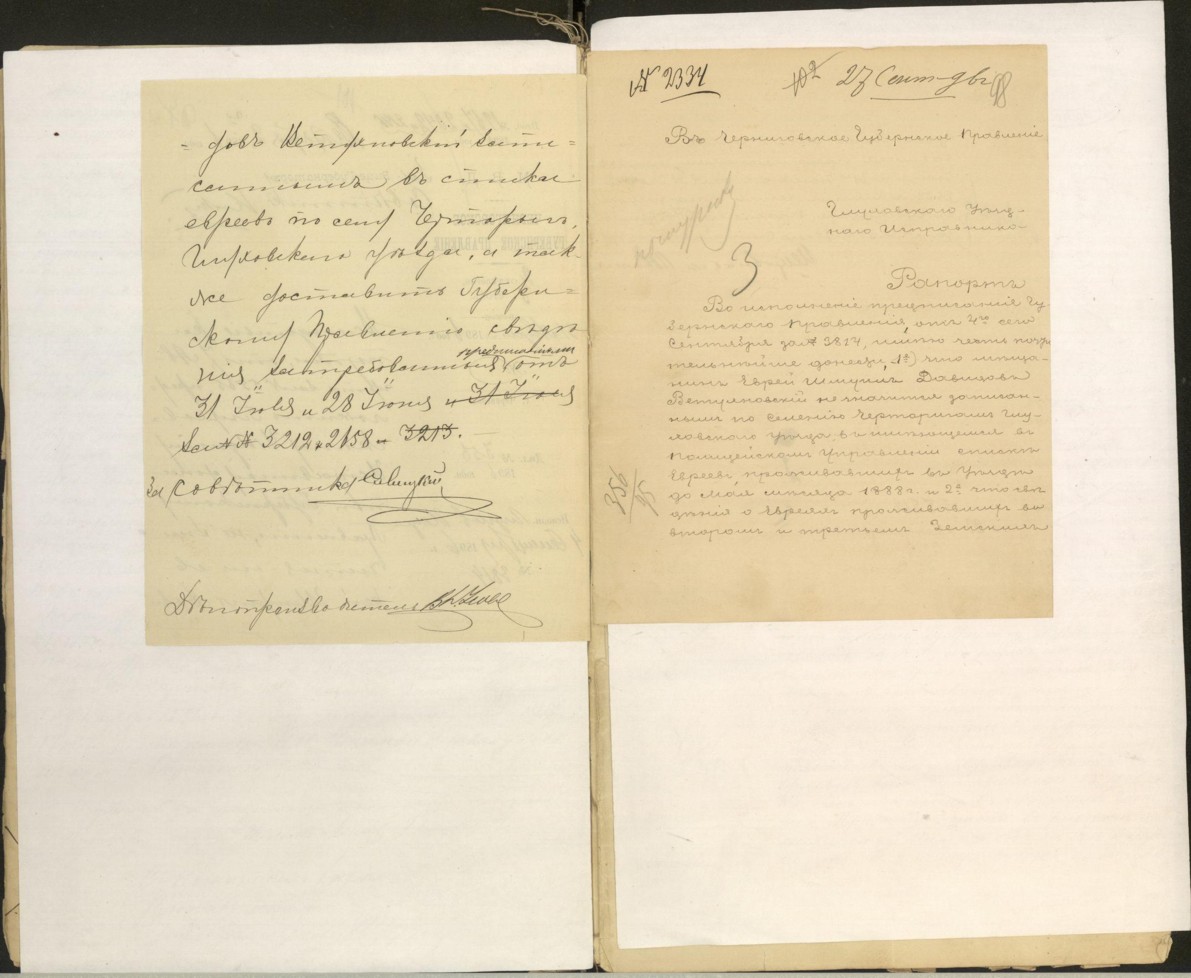 = довъ Ветуховский запи=
саннымъ въ списки
евреевъ по селу Чорторыги,
Глуховскаго уѣзда, а так-
же доставить Губерн=
скому Правленію свѣдѣ
нія затребованныя
предписаніями
отъ
31 Іюля и 28 Іюня и 31 Іюля
за №№ 3212, 2158 и 3213.
За Совѣтника Савицкій
Дѣлопроизводитель
№ 2334
27 Сент.
Въ Черниговское Губернское Правленіе
Глуховскаго Уѣзд-
наго Исправника
3
Рапортъ
Во исполненіе предписанія Гу-
бернскаго Правленія, отъ 4го сего
Сентября за № 3814, имѣю честь почти
тельнѣйше донести, 1е) что мѣща-
нинъ Еврей Шмуилъ Давидовъ
Ветуховскій не значится записан-
нымъ по селенію Чорторигамъ Глу-
ховскаго Уѣзда, въ имѣющемся въ
Полицейскомъ Управленіи спискѣ
Евреевъ, проживавшихъ въ Уѣздѣ
до Мая мѣсяца 1888 г. и 2е что свѣ
дѣнія о Евреяхъ проживавшихъ во
второмъ и третьемъ Земскихъ
356